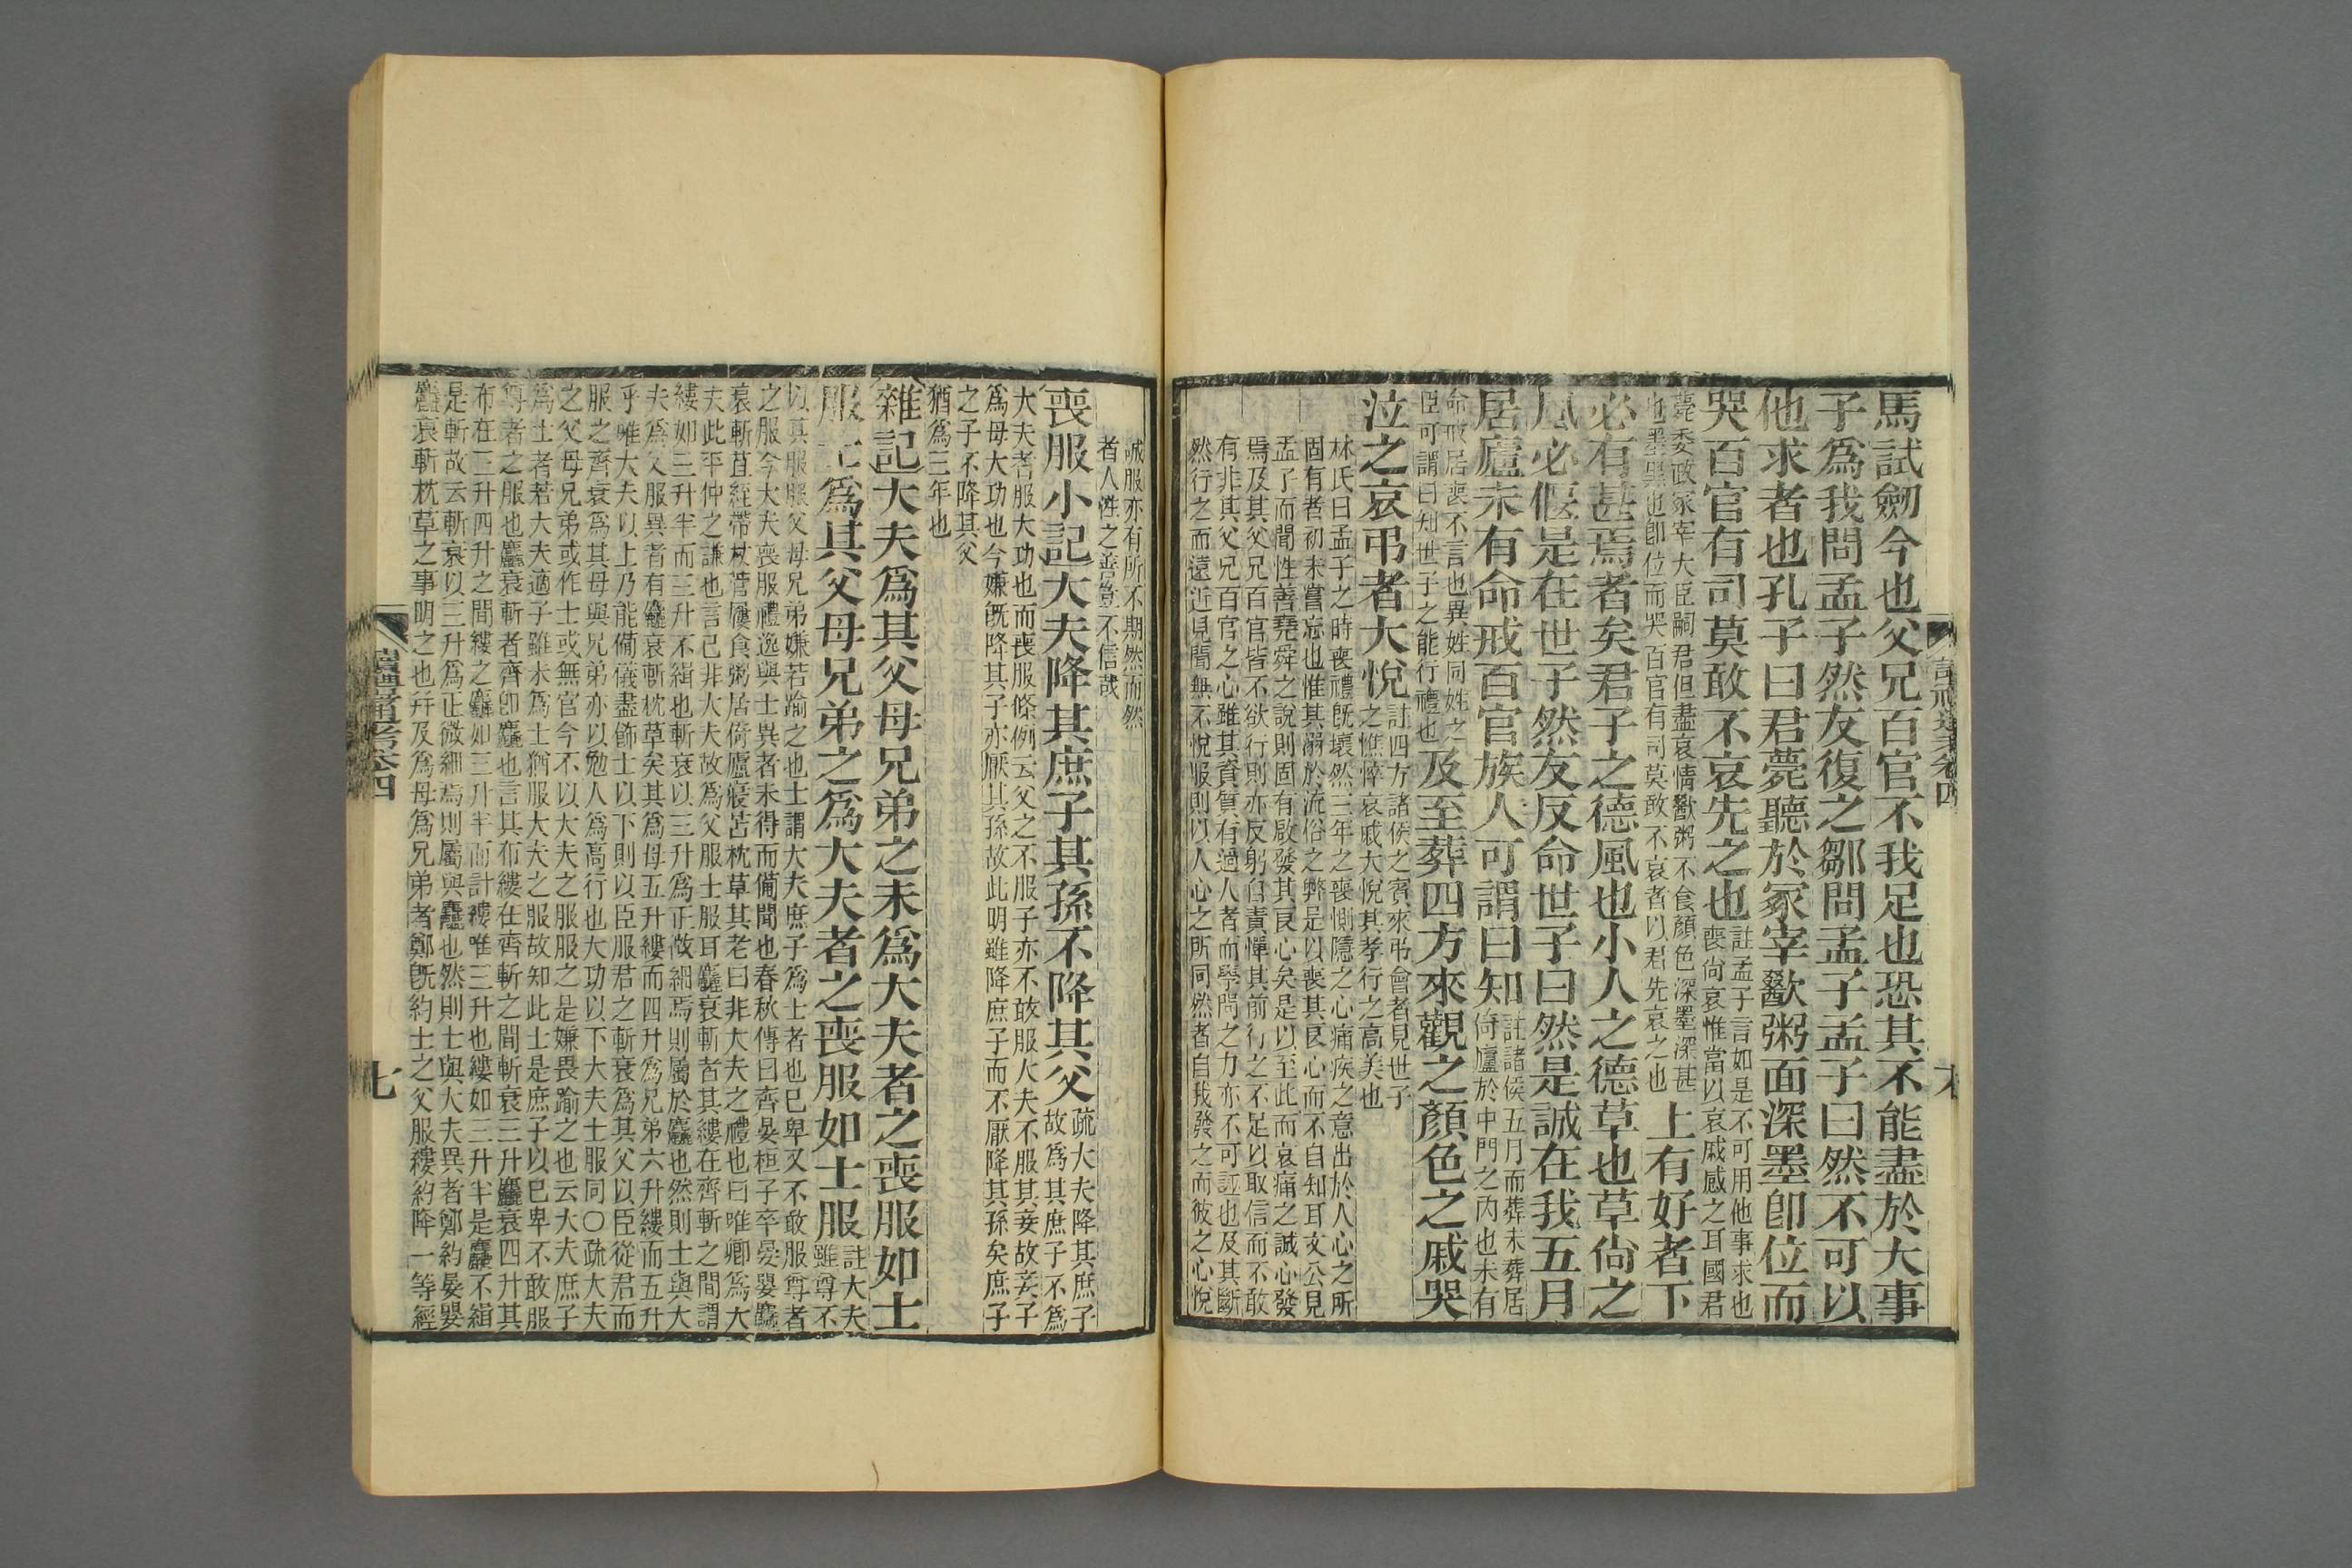 馬試劒今也父兄百官不我足也恐其不能盡於大事
子爲我問孟子然友復之鄒問孟子孟子曰然不可以
他求者也孔子曰君薨聽於冢宰歠粥面深墨卽位而
哭百官有司莫敢不哀先之也
註孟子言如是不可用他事求也
喪尙哀惟當以哀戚感之耳國君
薨委政冢宰大臣嗣君但盡哀情歠粥不食顏色深墨深甚
也墨黑也卽位而哭百官有司莫敢不哀者以君先哀之也
上有好者下
必有甚焉者矣君子之德風也小人之德草也草尙之
風必偃是在世子然友反命世子曰然是誠在我五月
居廬未有命戒百官族人可謂曰知
註諸侯五月而葬未葬居
倚廬於中門之內也未有
命戒居喪不言也異姓同姓之
臣可謂曰知世子之能行禮也
及至葬四方來觀之顏色之戚哭
泣之哀弔者大悅
註四方諸侯之賓來弔會者見世子
之憔悴哀戚大悅其孝行之高美也
林氏曰孟子之時喪禮旣壞然三年之喪惻隱之心痛疾之意出於人心之所
固有者初未嘗忘也惟其溺於流俗之弊是以喪其良心而不自知耳文公見
孟子而聞性善堯舜之說則固有啟發其良心矣是以至此而哀痛之誠心發
焉及其父兄百官皆不欲行則亦反躬自責憚其前行之不足以取信而不敢
有非其父兄百官之心雖其資質有過人者而學問之力亦不可誣也及其斷
然行之而遠近見聞無不悅服則以人心之所同然者自我發之而彼之心悅
誠服亦有所不期然而然
者人性之善豈不信哉
喪服小記大夫降其庶子其孫不降其父
疏大夫降其庶子
故爲其庶子不爲
大夫者服大功也而喪服條例云父之不服子亦不敢服大夫不服其妾故妾子
爲母大功也今嫌旣降其子亦厭其孫故此明雖降庶子而不厭降其孫矣庶子
之子不降其父
猶爲三年也
雜記大夫爲其父母兄弟之未爲大夫者之喪服如士
服士爲其父母兄弟之爲大夫者之喪服如士服
註大夫
雖尊不
以其服服父母兄弟嫌若踰之也士謂大夫庶子爲士者也已卑又不敢服尊者
之服今大夫喪服禮逸與士異者未得而備聞也春秋傳曰齊晏桓子卒晏嬰麤
衰斬苴絰帶杖菅屨食粥居倚廬寢苫枕草其老曰非大夫之禮也曰唯卿爲大
夫此平仲之謙也言己非大夫故爲父服士服耳麤衰斬者其縷在齊斬之間謂
縷如三升半而三升不緝也斬衰以三升爲正微細焉則屬於麤也然則士與大
夫爲父服異者有麤衰斬枕草矣其爲母五升縷而四升爲兄弟六升縷而五升
乎唯大夫以上乃能備儀盡飾士以下則以臣服君之斬衰爲其父以臣從君而
服之齊衰爲其母與兄弟亦以勉人爲高行也大功以下大夫士服同○疏大夫
之父母兄弟或作士或無官今不以大夫之服服之是嫌畏踰之也云大夫庶子
爲士者若大夫適子雖未爲士猶服大夫之服故知此士是庶子以已卑不敢服
尊者之服也麤衰斬者齊卽麤也言其布縷在齊斬之間斬衰三升麤衰四升其
布在三升四升之間縷之麤如三升半而計縷唯三升也縷如三升半是麤不緝
是斬故云斬衰以三升爲正微細焉則屬與麤也然則士與大夫異者鄭約晏嬰
麤衰斬枕草之事明之也幷及爲母爲兄弟者鄭旣約士之父服縷約降一等經
卷四
七